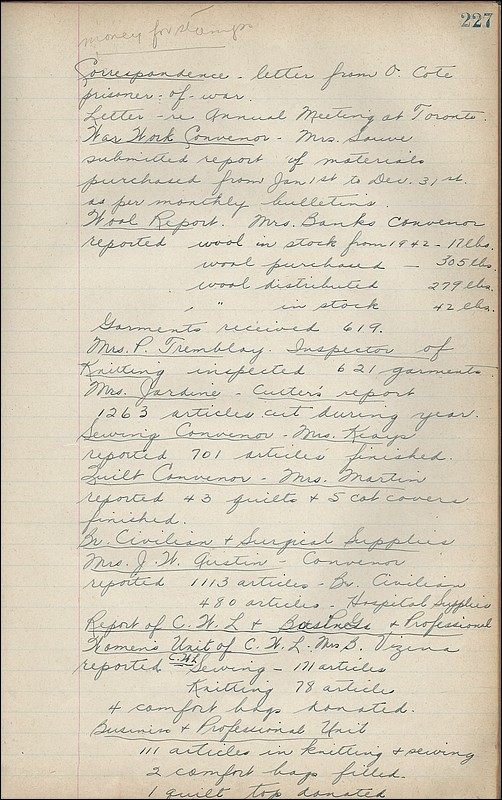 227
money for stamps
Correspondence - letter from O. Cote
prisoner-of-war.
Letter - re Annual Meeting at Toronto.
War Work Convenor - Mrs. Sauve
submitted report of materials
purchased from Jan 1st to Dec. 31st.
as per monthly bulletins.
Wool Report. Mrs. Banks Convenor
reported wool in stock from 1942 - 17 lbs.
wool purchased - 305 lbs.
wool distributed 279 lbs.
" in stock 42 lbs.
Garments received 619.
Mrs. P. Tremblay. Inspector of
Knitting inspected 621 garments
Mrs. Jardine - Cutter's report
1263 articles cut during year.
Sewing Convenor - Mrs. Keays
reported 701 articles finished.
Quilt Convenor - Mrs. Martin
reported 43 quilts + 5 cot covers
finished.
Br. Civilian + Surgical Supplies
Mrs. J. W. Austin - Convenor
reported 1113 articles - Br. Civilian
480 articles - Hospital Supplies
Report of C. W. L + Business + Professional
Womens Unit of C. W. L. Mrs B. Vizena
reported C.W.L Sewing - 171 articles
Knitting 78 articles
4 comfort bags donated.
Business + Professional Unit
111 articles in knitting + sewing
2 comfort bags filled.
1 quilt top donated